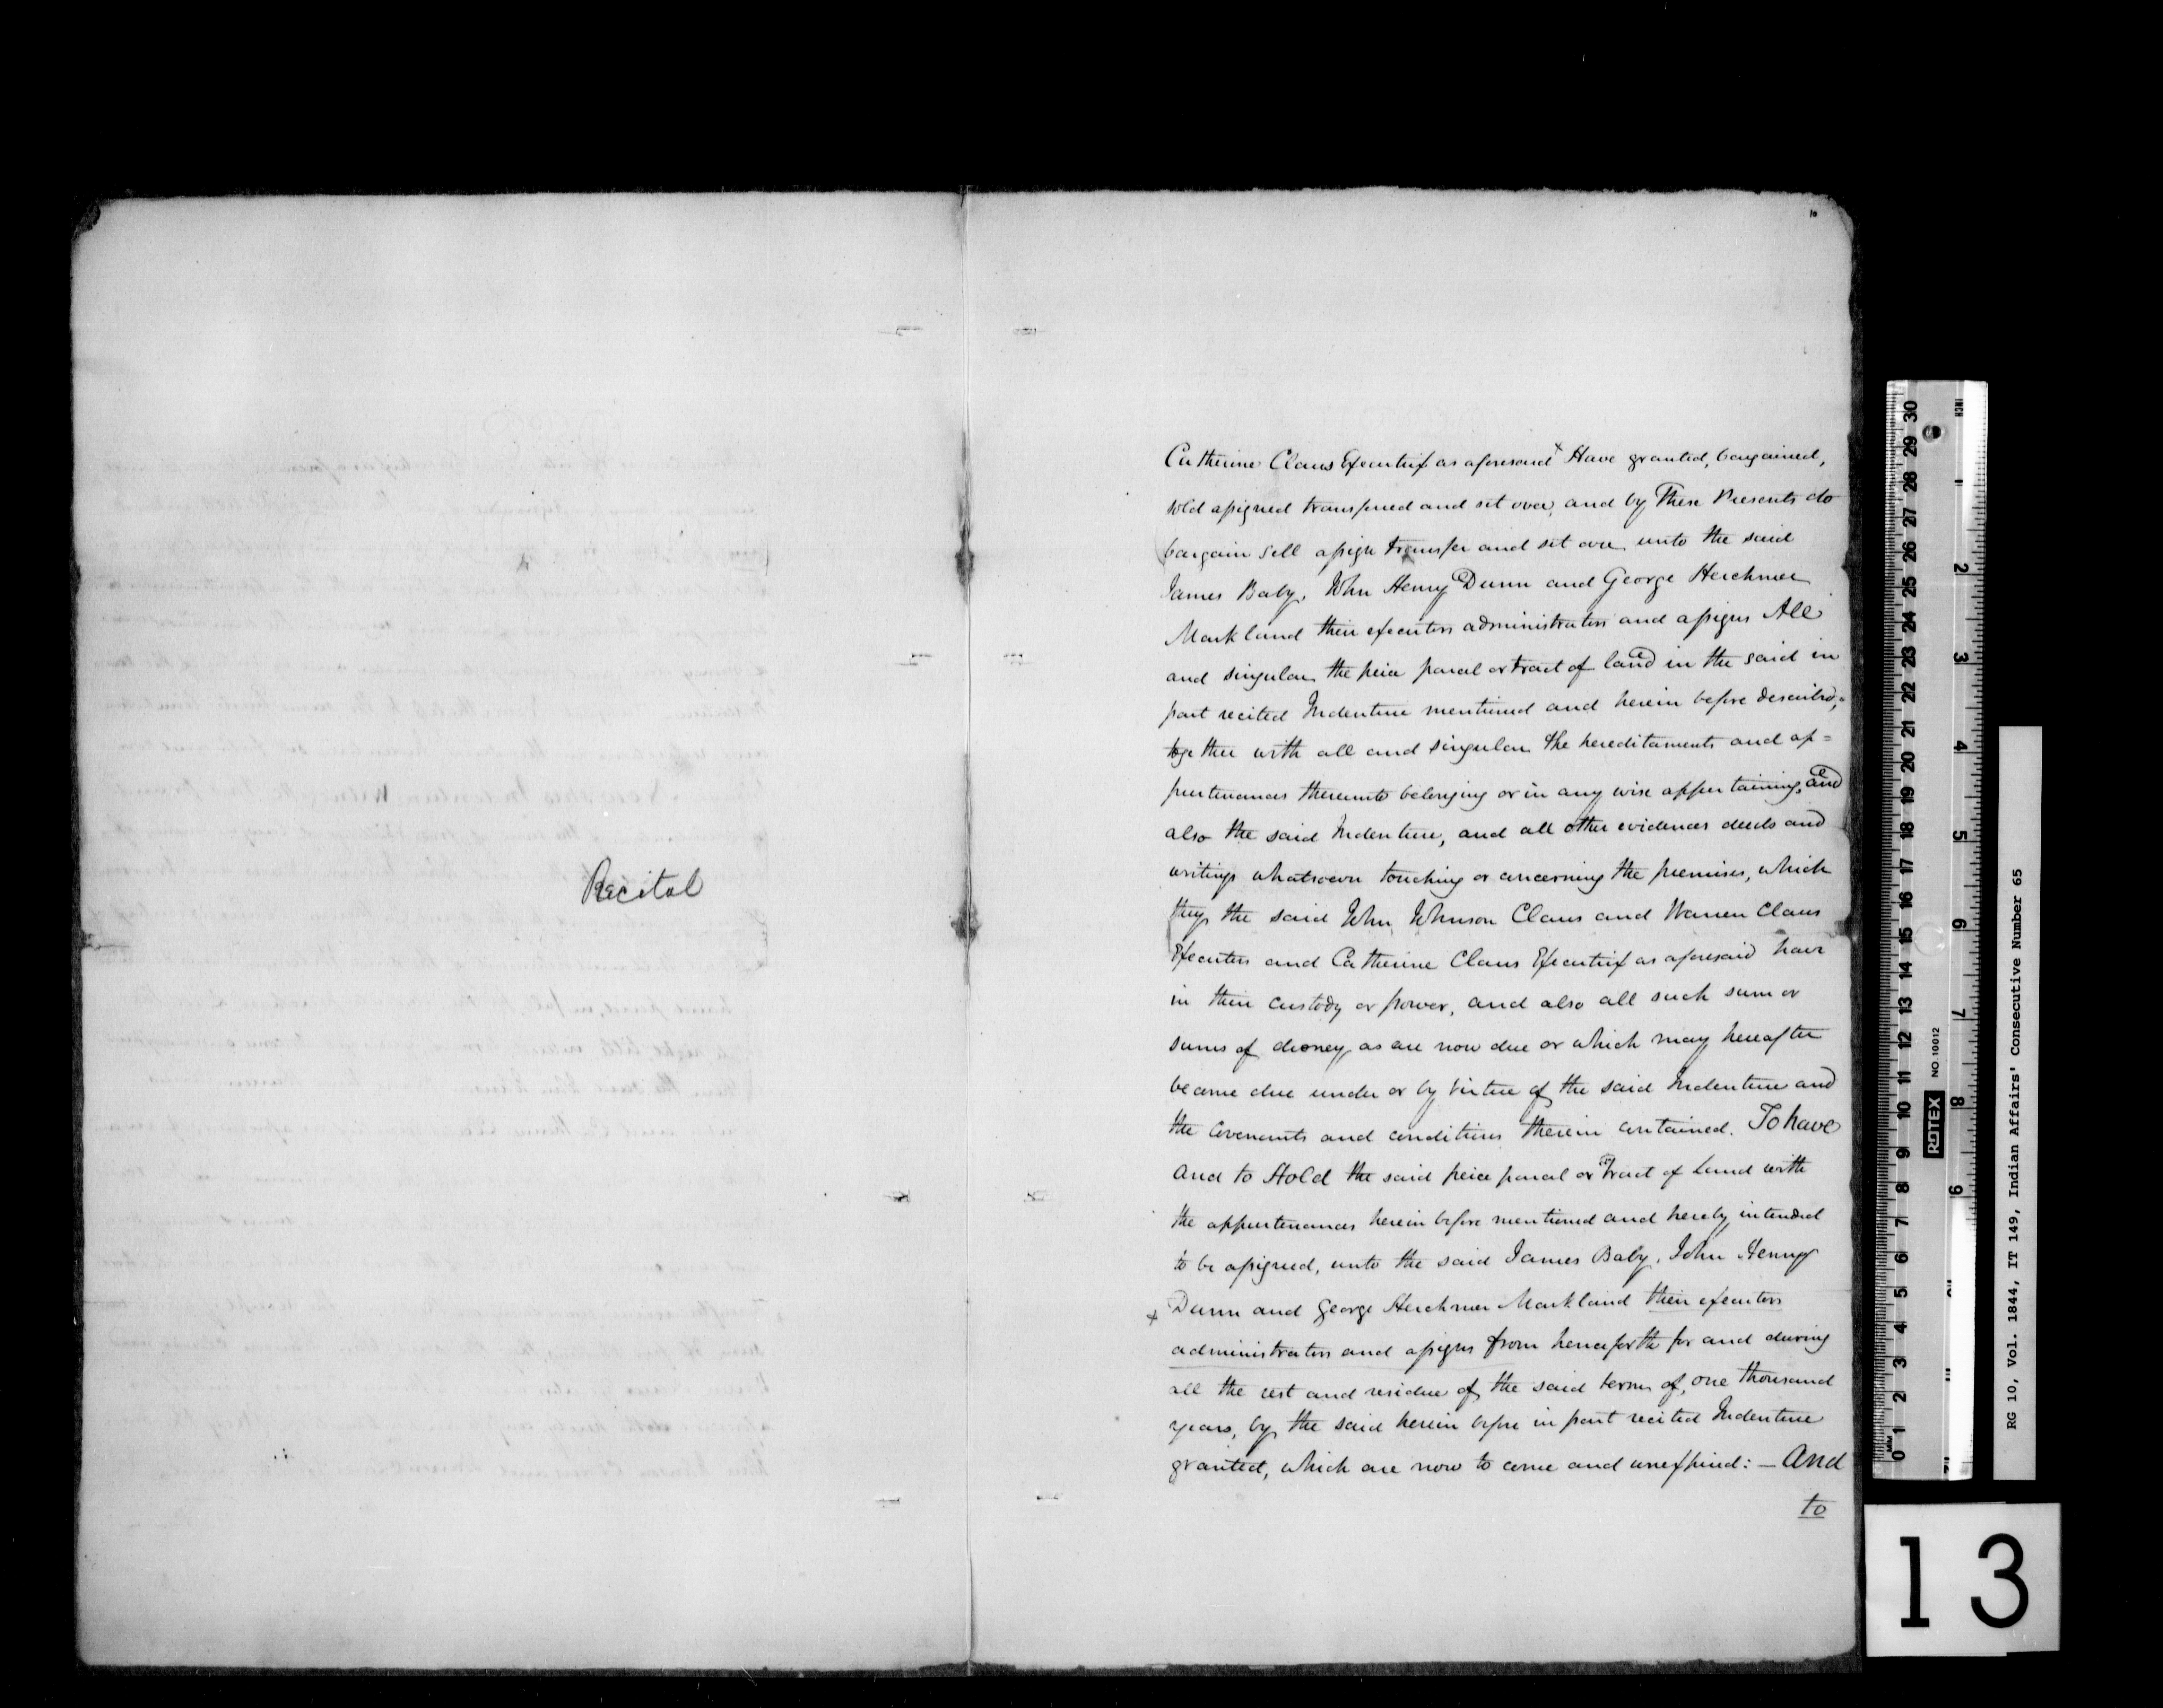 Recital
10
Catherine Claus Executrix as aforesaid x Have granted, bargained,
sold assigned transferred and set over, and by These Presents do
bargain sell assign transfer and set over unto the said
James Baby, John Henry Dunn and George Herchmer
Markland their executors administrators and assigns All
and singular the peice parcel or tract of land in the said in
part recited Indenture mentioned and herein before described,=
together with all and singular the hereditaments and ap=
purtenances thereunto belonging or in any wise appertaining, and
also the said Indenture, and all other evidences deeds and
writings whatsoever touching or concerning the premises, which
they the said John Johnson Claus and Warren Claus
Executors and Catherine Claus Executrix as aforesaid have
in their custody or power, and also all such sum or
sums of money as are now due or which may hereafter
become due under or by virtue of the said Indenture and
the Covenants and conditions therein contained. To have
and to Hold the said peice parcel or Tract of Land with
the appurtenances herein before mentioned and hereby intended
to be assigned, unto the said James Baby, John Henry
x Dunn and George Herchmer Markland their executors
administrators and assigns from henceforth for and during
all the rest and residue of the said term of, one thousand
years, by the said herein before in part recited Indenture
granted, which are now to come and unexpired: — And
to
RG 10, Vol. 1844, IT 149, Indian Affairs' Consecutive Number 65
ROTEX NO. 10012
INCH
1 2 3 4 5 6 7 8 9
0 1 2 3 4 5 6 7 8 9 10 11 12 13 14 15 16 17 18 19 20 21 22 23 24 25 26 27 28 29 30
13